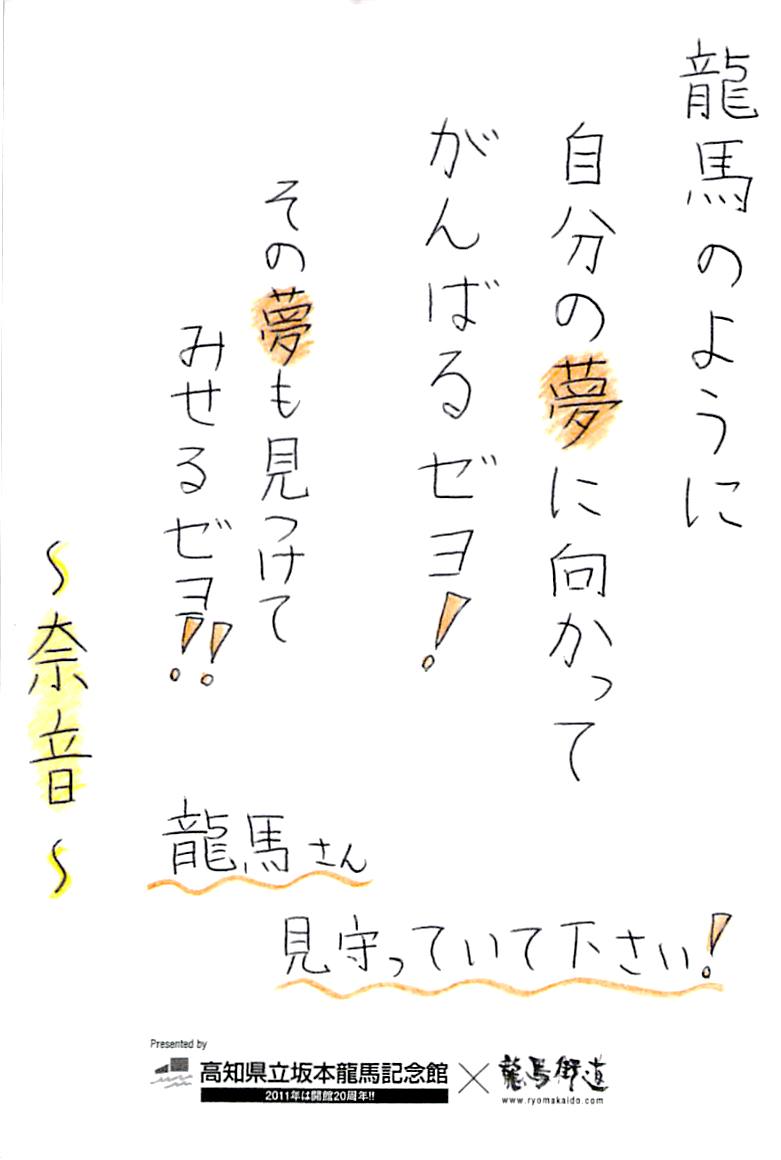 龍馬のように
自分の夢に向かって
がんばるゼヨ!
その夢も見つけて
みせるゼヨ!!
~奈音~
龍馬さん
見守っていて下さい!
Presented by
高知県立坂本龍馬記念館
2011年は開館20周年!!
×
龍馬街道
www.ryomakaido.com